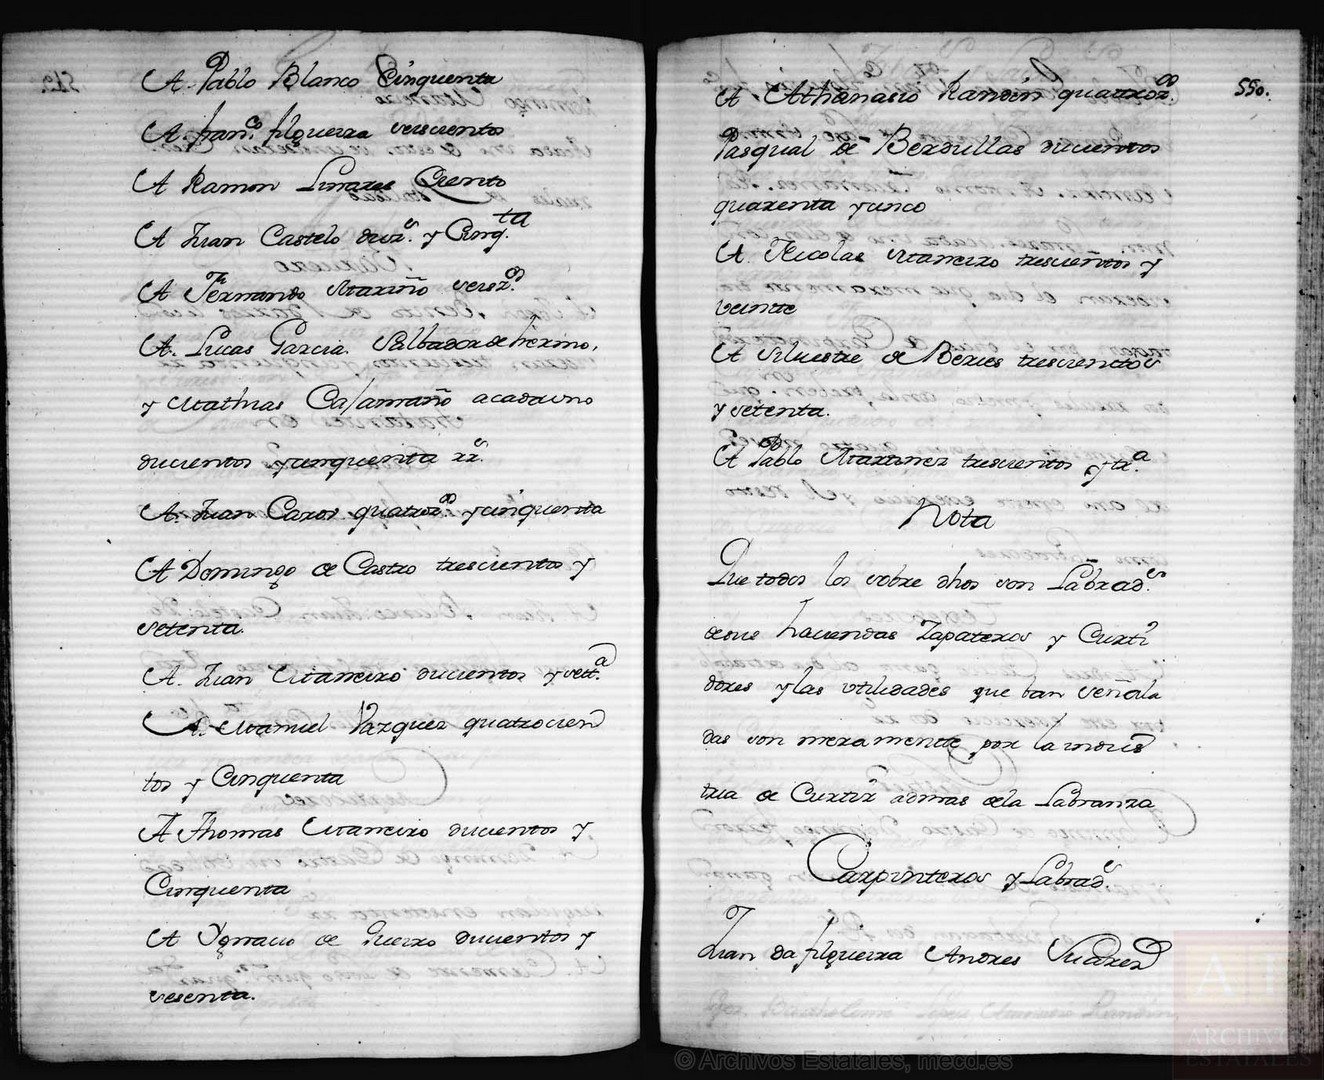 A Pablo Blanco Cinquenta
A. fran.co filgueira seiscientos
A Ramon Linares Ciento
A Juan Castelo duz.s y Cinq.ta
A Fernando Mariño seisz.os
A. Lucas Garcia. Salbador de
y Mathias Cajamaño acadauno
ducientos ycinquenta rr.s
A. Juan Caros quatroz.os ycinquenta
A Domingo de Castro trescientos y
setenta.
A. Juan Maneiro ducientos y sett.a
A. Manuel Vazquez quatrocien
tos y Cinquenta
A Thomas Maneiro ducientos y
Cinquenta
A Ygnacio de Pueiro ducientos y
sesenta.
550.
A Athanasio Randin quatroz.os
Pasqual de Bermullas ducientos
quarenta ycinco
A. Nicolas Maneiro trescientos y
veinte
A Silvestre de Beres trescientos
y setenta.
A Pablo Martinez trescientos y tr.a
Nota
Que todos los sobre dhos son Labrad.s
desus haciendas Zapateros y Curti
dores ylas utilidades que ban señala
das son meramente por la indus
tria de Curtir ademas dela Labranza
Carpinteros y Labrad.s
Juan da filgueira Andres Suarez
© Archivos Estatales, mecd.es
ARCHIVOS
ESTATALES